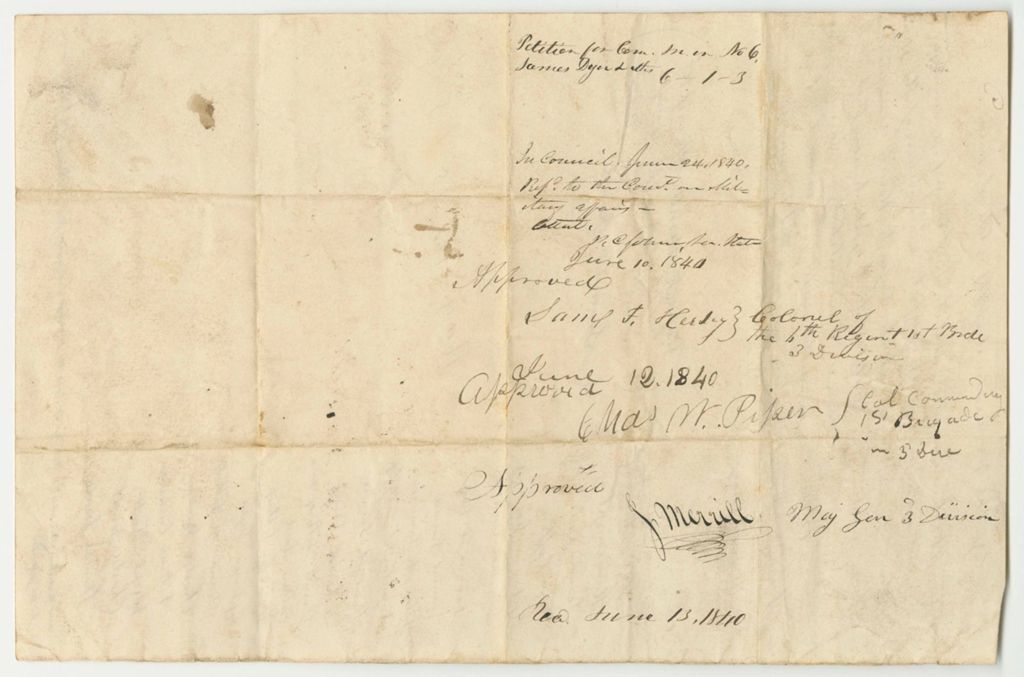 Petition for Com. in No 6,
James Dyer & als
6-1-3
In Council, June 24, 1840,
Ref'd to the Com'e on Mili-
tary affairs-
Attest:
P. C. Johnson, Sec. State
June 10, 1840
Approved
Saml F. Hersey } Colonel of
the 6th Regimt 1st Brde
3 Division
June 12, 1840
Approved
Chas W. Piper { Col Commanding
1st Brigade
in 3 Divi
Approved
J Merrill, Maj Gen 3 Division
Recd June 13, 1840